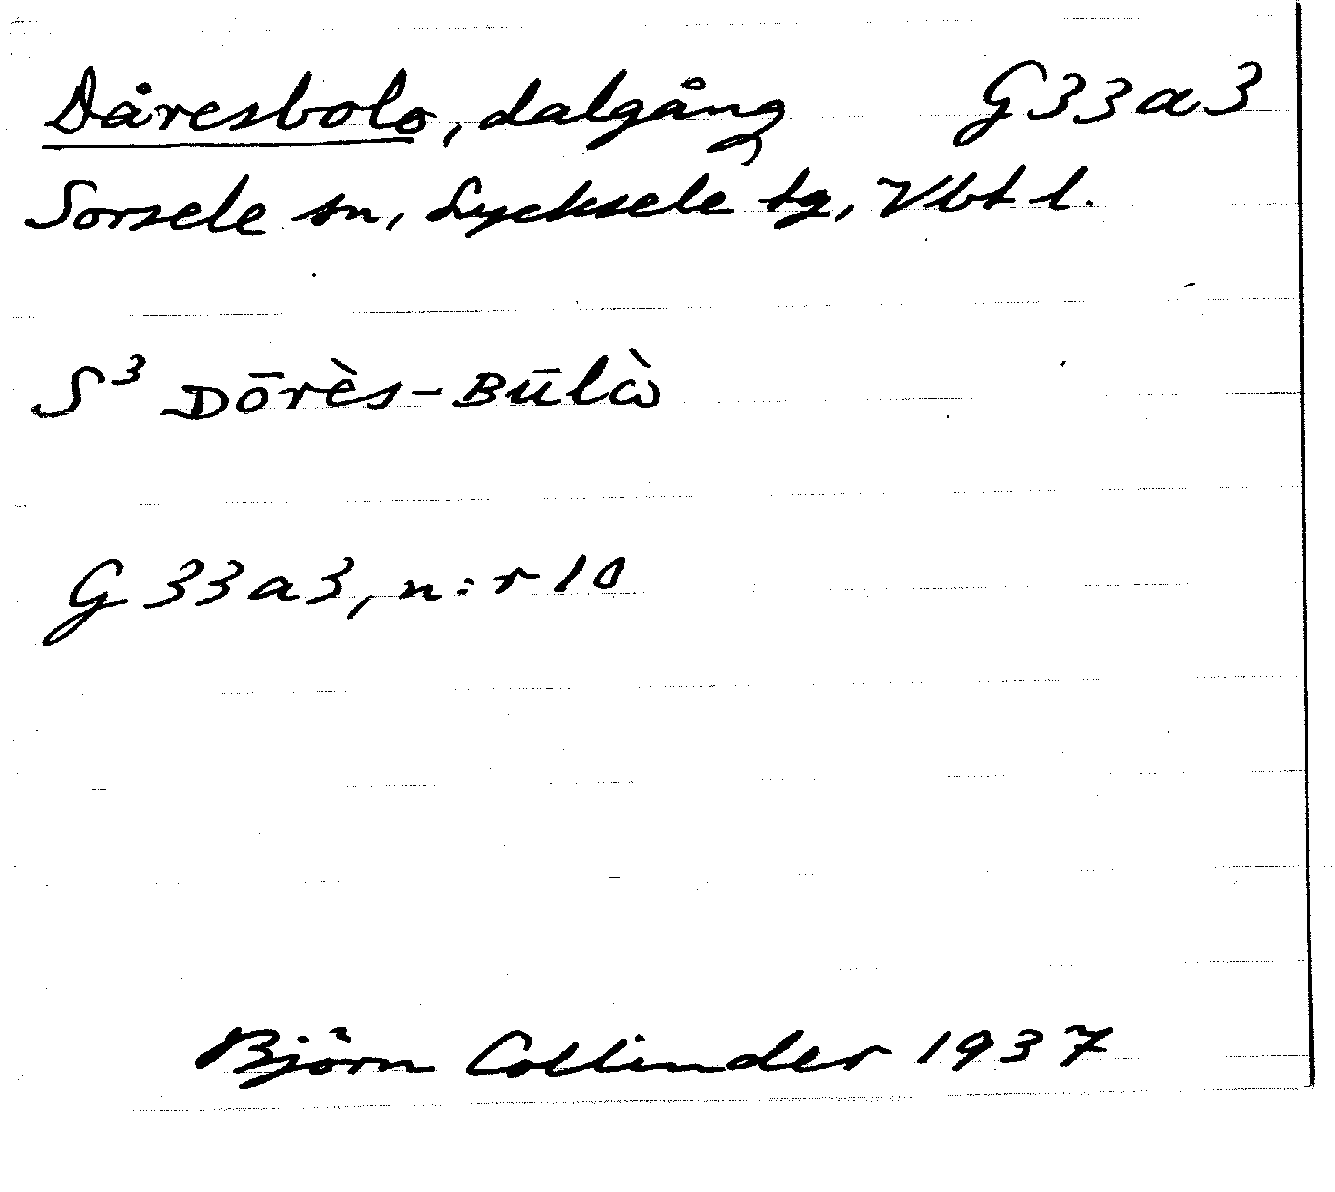 Dåresbolo, dalgång G33a3
Sorsele sn, Lycksele tg, Vbt l.
S³ Dōrès-Būlὼ
G 33a3, n:r 10
Björn Collinder 1937